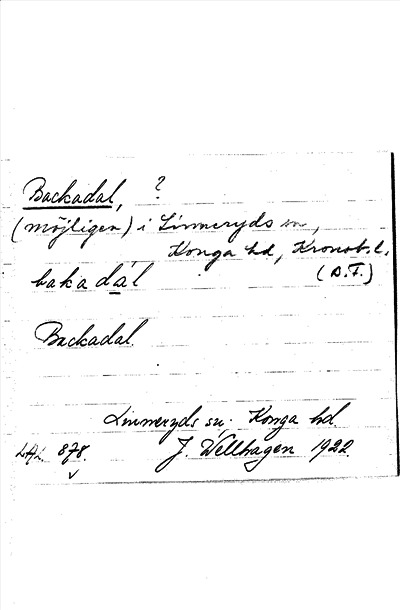 Backadal, ?
(möjligen) i Linneryds sn,
Konga hd, Kronob.l.
baka dál (D.F.)
Backadal.
Linneryds sn. Konga hd.
LAL 878. J. Wellhagen 1922.